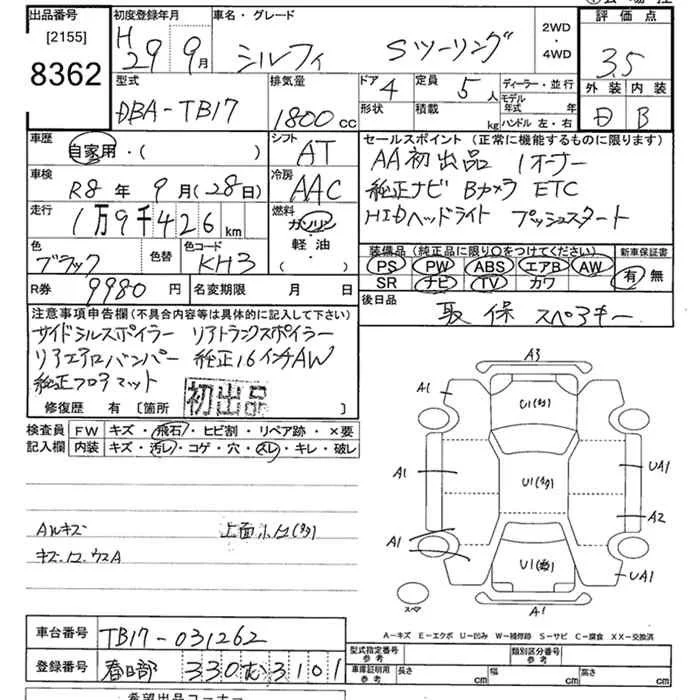 出品番号
[2155]
8362
初度登録年月
H 29 9月
車名・グレード
シルフィ Sツーリング
2WD
・
4WD
評価点
3.5
外装 内装
D B
型式
DBA-TB17
排気量
1800 cc
ドア 4
形状
定員 5人
積載 kg
ディーラー・並行
モデル年式 年
ハンドル 左・右
車歴
自家用・( )
シフト
AT
車検
R8年 9月(28日)
冷房
AAC
走行
1万9千426km
燃料
ガソリン
軽油
( )
色
ブラック
色替
色コード
KH3
R券 9980円
名変期限 月 日
セールスポイント(正常に機能するものに限ります)
AA初出品 1オーナー
純正ナビ Bカメラ ETC
HIDヘッドライト プッシュスタート
装備品(純正品に限り○をつけてください)
PS PW ABS エアB AW
SR ナビ TV カワ
新車保証書
有 無
後日品
取 保 スペアキー
注意事項申告欄(不具合内容等は具体的に記入して下さい)
サイドシルスポイラー リアトランクスポイラー
リアエアロバンパー 純正16インチAW
純正フロアマット
初出品
修復歴 有 [箇所 ]
検査員記入欄
FW キズ・飛石・ヒビ割・リペア跡・×要
内装 キズ・汚レ・コゲ・穴・スレ・キレ・破レ
AWキズ
上面小凹(多)
A3
A1
U1(多)
A1
U1(多)
UA1
A2
A1
U1(多)
UA1
A1
スペア
A-キズ E-エクボ U-凹み W-補修跡 S-サビ C-腐食 XX-交換済
車台番号 TB17-031262
登録番号 春日部 330 む 3101
型式指定番号
参考
類別区分番号
参考
車庫証明用
参考
長さ cm 幅 cm 高さ cm
希望出品コーナー